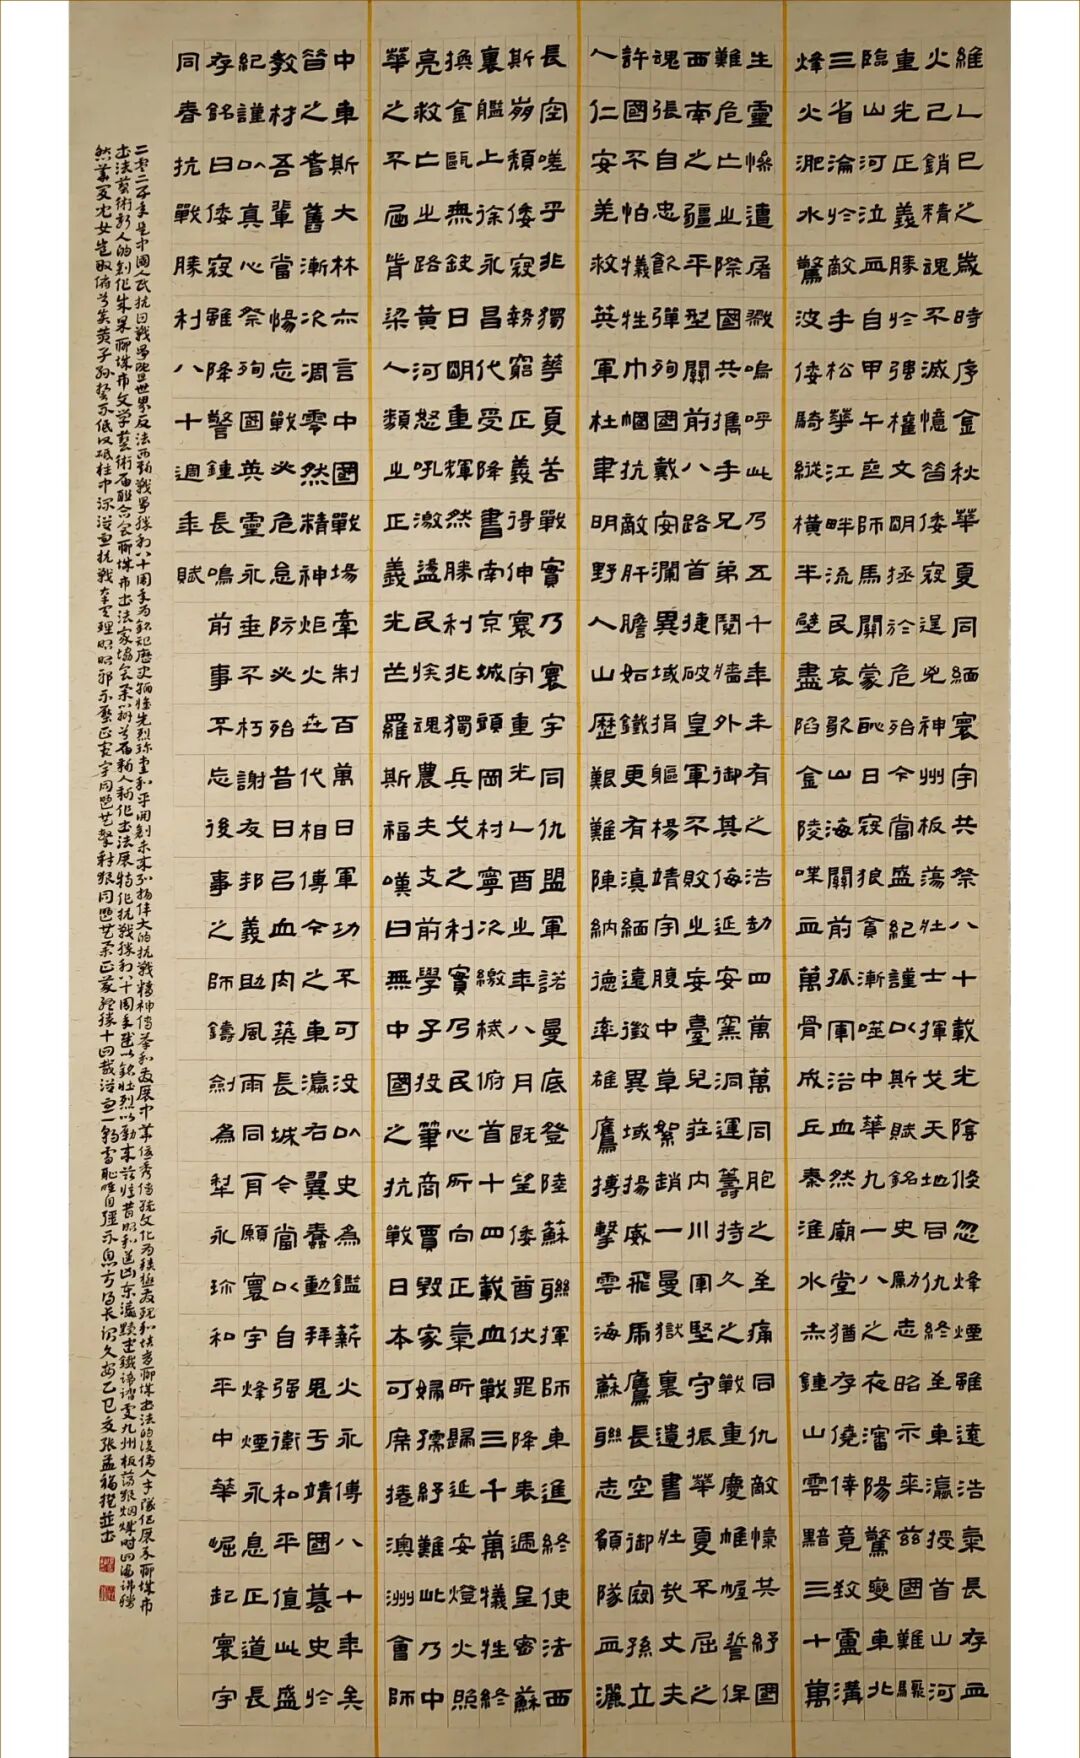 維乙巳之歲時序金秋華夏同緬寰宇共祭八十載光陰倏忽烽煙雖遠浩氣長存血
火已銷精魂不滅憶昔倭寇逞兇神州板蕩壯士揮戈天地同仇終至東瀛授首山河
重光正義勝於強權文明拯於危殆今當盛紀謹以斯賦銘史勵志昭示來茲國難驟
臨山河泣血自甲午喪師馬關蒙恥日寇狼貪漸噬中華九一八之夜瀋陽驚變東北
三省淪於敵手松華江畔流民哀歌山海關前孤軍浴血然廟堂猶存僥倖竟致盧溝
烽火淝水驚波倭騎縱橫半壁盡陷金陵喋血萬骨成丘秦淮水赤鍾山雲黯三十萬
生靈慘遭屠戮嗚呼此乃五千年未有之浩劫四萬萬同胞之至痛同仇敵愾共紓國
難危亡之際國共攜手兄弟鬩牆外御其侮延安窯洞運籌持久之戰重慶帷幄誓保
西南之疆平型關前八路首捷破皇軍不敗之妄臺兒莊內川軍堅守振華夏不屈之
魂張自忠飲彈殉國戴安瀾異域捐軀楊靖宇腹中草絮趙一曼獄裏遺書壯哉丈夫
許國不怕犧牲巾幗抗敵肝膽如鐵更有滇緬遠徵異域揚威飛虎鷹長空御寇孫立
人仁安羌救英軍杜聿明野人山歷艱難陳納德率雄鷹搏擊雲海蘇聯志願隊血灑
長空嗟乎非獨華夏苦戰實乃寰宇同仇盟軍諾曼底登陸蘇聯揮師東進終使法西
斯崩頹倭寇勢窮正義得伸寰宇重光乙酉之年八月既望倭酋伏罪降表遞呈密蘇
裏艦上徐永昌代受降書南京城頭岡村寧次繳械俯首十四載血戰三千萬犧牲終
換金甌無缺日明重輝然勝利非獨兵戈之利實乃民心所向正氣所歸延安燈火照
亮救亡之路黃河怒吼激盪民族魂農夫支前學子投筆商賈毀家婦孺紓難此乃中
華之不屈脊梁人類之正義光芒羅斯福嘆曰無中國之抗戰日本可席捲澳洲會師
中東斯大林亦言中國戰場牽制百萬日軍功不可沒以史為鑑薪火永傳八十年矣
昔之耆舊漸次凋零然精神炬火世代相傳今之東瀛右翼蠢動拜鬼靖國墓史於
教材吾輩當惕忘戰必危怠防必殆昔日以血肉築長城今當以自強衛和平值此盛
紀謹以真心祭殉國英靈永垂不朽謝友邦義助風雨同舟願寰宇烽煙永息正道長
存銘曰倭寇雖降警鐘長鳴前事不忘後事之師鑄劍為犁永珍和平中華崛起寰宇
同春抗戰勝利八十週年賦
二零二五年是中國人民抗日戰爭暨世界反法西斯戰爭勝利八十周年為銘記歷史緬懷先烈珍愛和平開創未來弘揚偉大的抗戰精神傳承和發展中華優秀傳統文化
書法藝術新人的創作成果聊城市文學藝術界聯合會聊城市書法家協會
乙巳夏張孟福撰並書